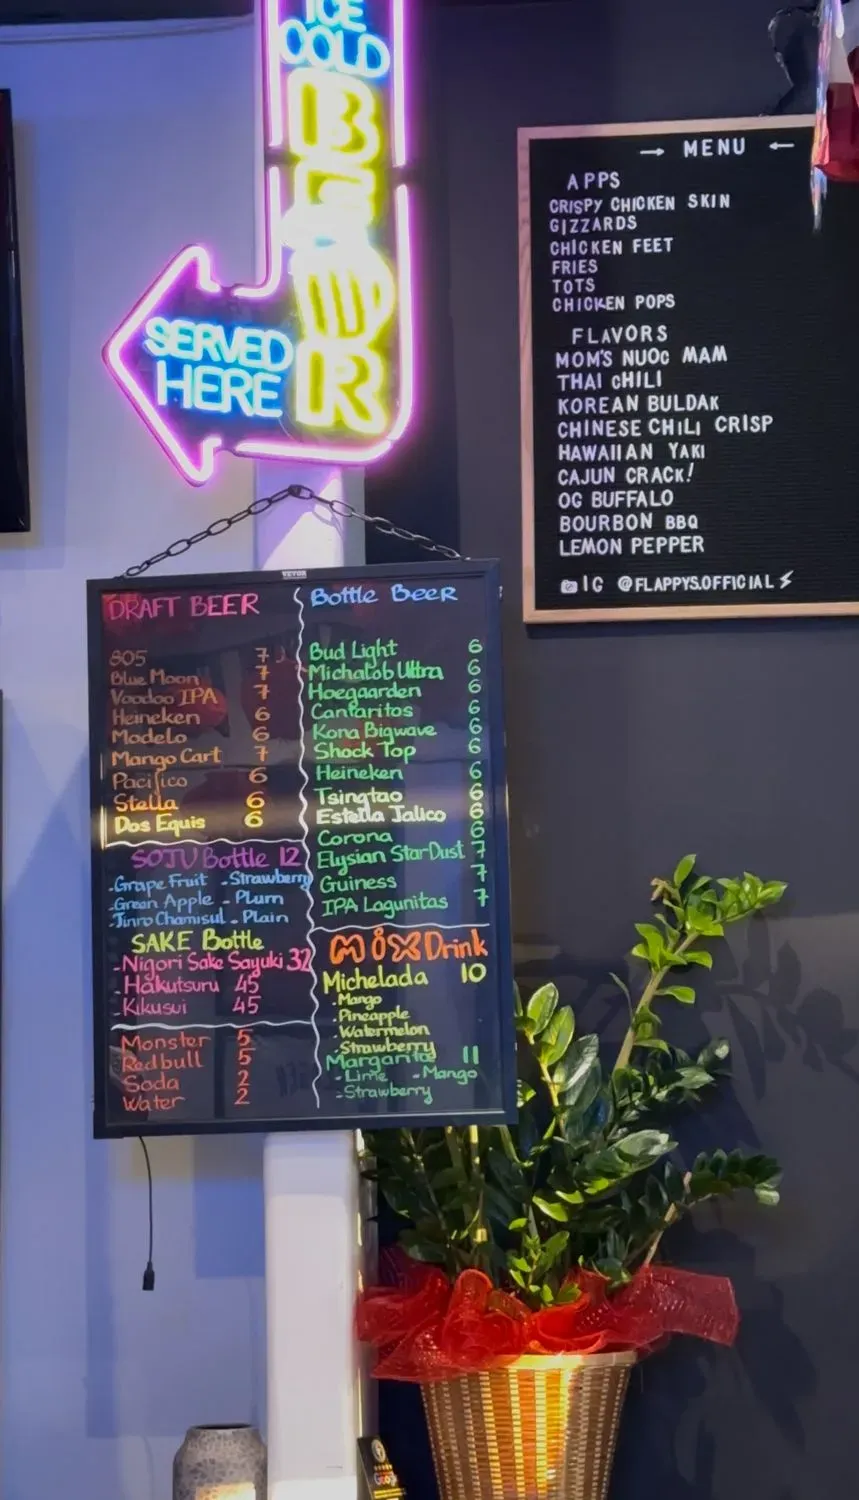 ICE
COLD
BEER
SERVED
HERE
→ MENU ←
APPS
CRISPY CHICKEN SKIN
GIZZARDS
CHICKEN FEET
FRIES
TOTS
CHICKEN POPS
FLAVORS
MOM'S NUOC MAM
THAI CHILI
KOREAN BULDAK
CHINESE CHILI CRISP
HAWAIIAN YAKI
CAJUN CRACK!
OG BUFFALO
BOURBON BBQ
LEMON PEPPER
IG @FLAPPYS.OFFICIAL
VEVOR
DRAFT BEER
805 7
Blue Moon 7
Voodoo IPA 7
Heineken 6
Modelo 6
Mango Cart 7
Pacifico 6
Stella 6
Dos Equis 6
SOJU Bottle 12
-Grape Fruit -Strawberry
-Green Apple - Plum
-Jinro Chamisul - Plain
SAKE Bottle
-Nigori Sake Sayuki 32
- Hakutsuru 45
- Kikusui 45
Monster 5
Redbull 5
Soda 2
Water 2
Bottle Beer
Bud Light 6
Michalob Ultra 6
Hoegaarden 6
Cantaritos 6
Kona Bigwave 6
Shock Top 6
Heineken 6
Tsingtao 6
Estella Jalico 6
Corona 6
Elysian StarDust 7
Guiness 7
IPA Lagunitas 7
MIX Drink
Michelada 10
-Mango
-Pineapple
-Watermelon
-Strawberry
Margarita 11
-Lime -Mango
-Strawberry
Google